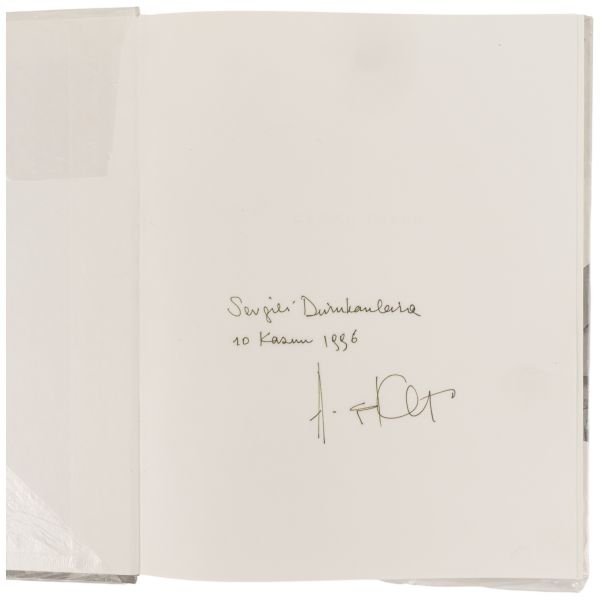 Sevgili Durukanlara
10 Kasım 1996